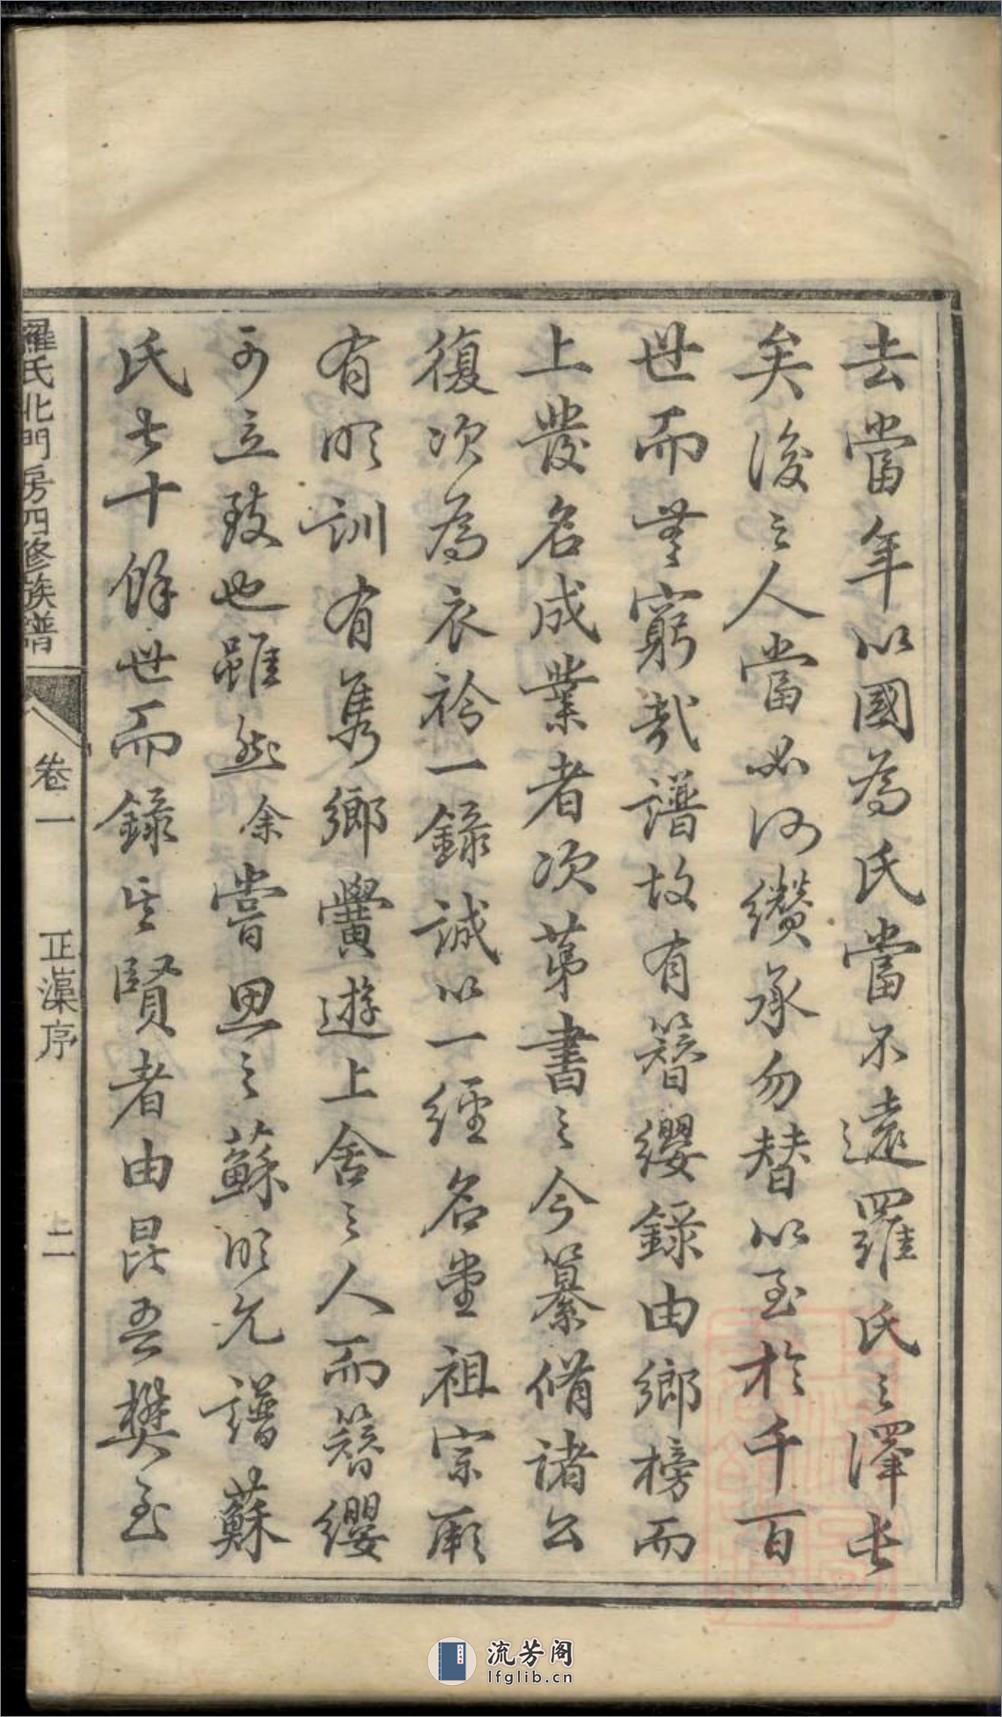 去當年以國為氏當不遠羅氏之澤長
矣後之人當必河纘承勿替以至於千百
世而無窮哉譜故有簪纓錄由鄉榜而
上發名成業者次第書之今纂脩諸公
復次為衣衿一錄誠以一經名堂祖宗厥
有明訓有雋鄉黌遊上舍之人而簪纓
可立致也雖然余嘗思之蘇明允譜蘇
氏七十餘世而錄其賢者由昆吾樊至
羅氏北門房四修族譜
卷一
正藻序
二
流芳阁
lfglib.cn